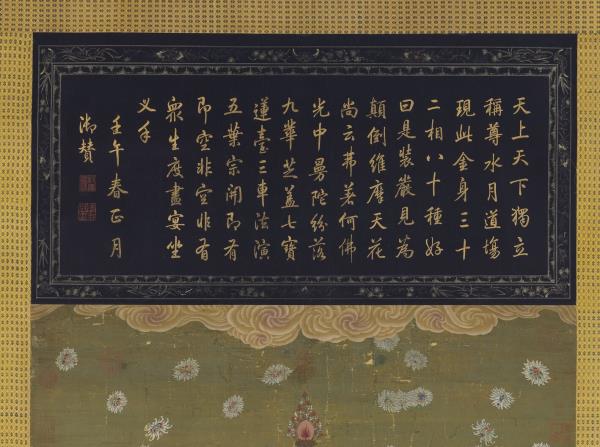 天上天下獨立
稱尊水月道場
現此金身三十
二相八十種好
曰是裝嚴見為
顛倒維摩天花
尚云弗著何佛
光中曼陀紛落
九華芝蓋七寶
蓮臺三車法演
五葉宗開即有
即空非空非有
眾生度盡宴坐
叉手
壬午春正月
御贊